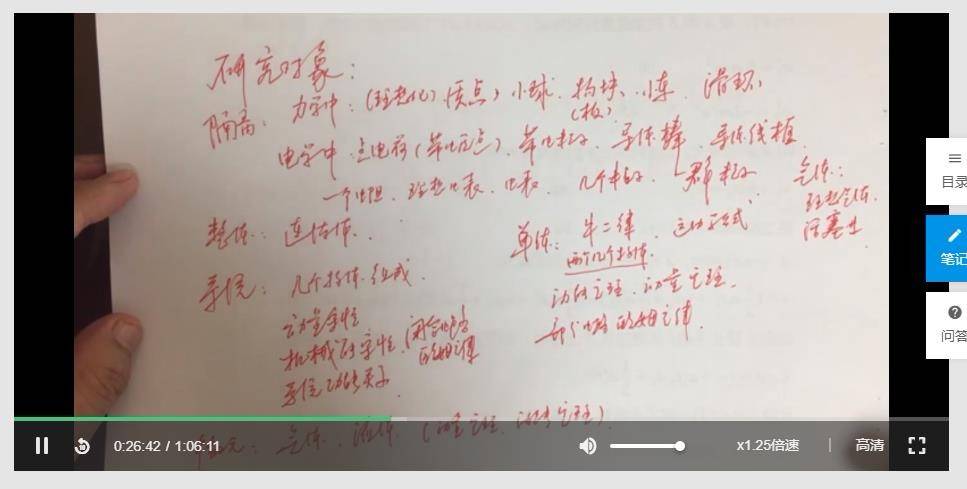 研究对象：
隔离：力学中：（理想化）质点）小球、物块、小车、滑环、
（板）
电学中 点电荷（带电质点）、带电粒子、导体棒、导体线框
一个电阻、理想电表、电表、几个粒子、一群粒子
气体：
理想气体
活塞
整体：连结体．
单体：牛二律 运动公式
两个几个物体．
动能定理．动量定理．
部分电路欧姆定律．
系统：几个物体组成
动量守恒
机械能守恒
系统功能关系
闭合电路
的欧姆定律
气体、流体．（动量定理、动能定理）
0:26:42 / 1:06:11
x1.25倍速
高清
目录
笔记
问答